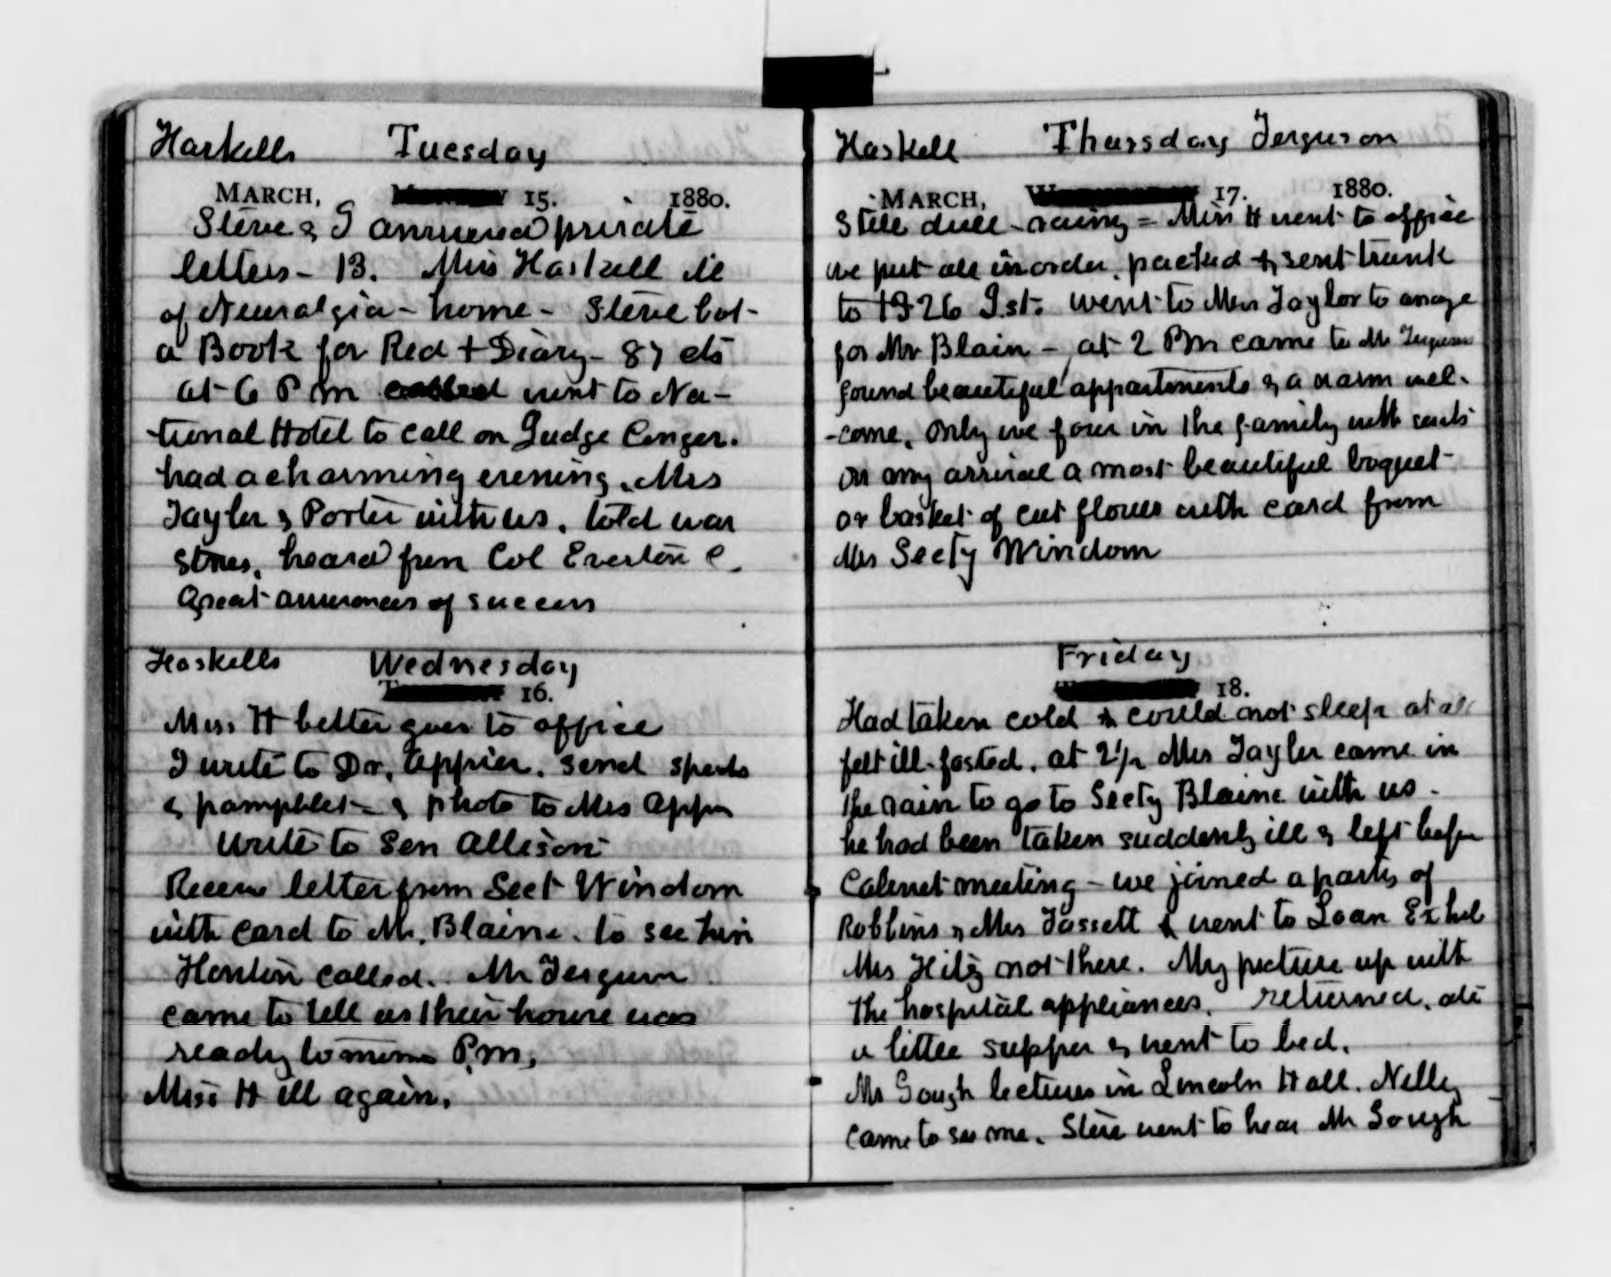 Haskells Tuesday
MARCH, 15. 1880.
Steve & I answered private
letters - 13. Miss Haskell ill
of Neuralgia - home - Steve bot-
a Book for Red + Diary - 87 cts
at 6 P m called went to Na-
tional Hotel to call on Judge Conger.
had a charming evening. Mrs
Tayler & Porter with us. told war
stories, heard from Col Everton C.
Great assurances of success
Haskells Wednesday
16.
Miss H better goes to office
I write to Dr. Appier. send
& pamphlet - & photo to Mrs
Write to Sen Allison
Receive letter from Sect Windom
with card to Mr. Blaine. to see him
called. Mr Ferguson
came to tell us their house was
ready P.m,
Miss H ill again.
Haskell Thursday Ferguson
MARCH, 17. 1880.
Still dull - rainy - Miss H went to office
we put all in order. packed & sent trunk
to 1326 I st. went to Mrs Taylor to arrange
for Mr Blain - at 2 Pm came to Mr Ferguson
found beautiful appartments & a warm wel-
-come. Only we four in the family with
on my arrival a most beautiful boquet
or basket of cut flowers with card from
Mrs Secty Windom
Friday
18.
Had taken cold & could not sleep at all
felt ill - fasted. at 2 1/2 Mrs Tayler came in
the rain to go to Secty Blaine with us -
he had been taken suddenly ill & left before
Cabinet meeting - we joined a party of
Robbins & Mrs Fassett & went to Loan Exhib
Mrs Hitz not there. My picture up with
the hospital appliances. returned. ate
a little supper & went to bed.
Mr Gough lectures in Lincoln Hall. Nelly
came to see me. Steve went to hear Mr Gough